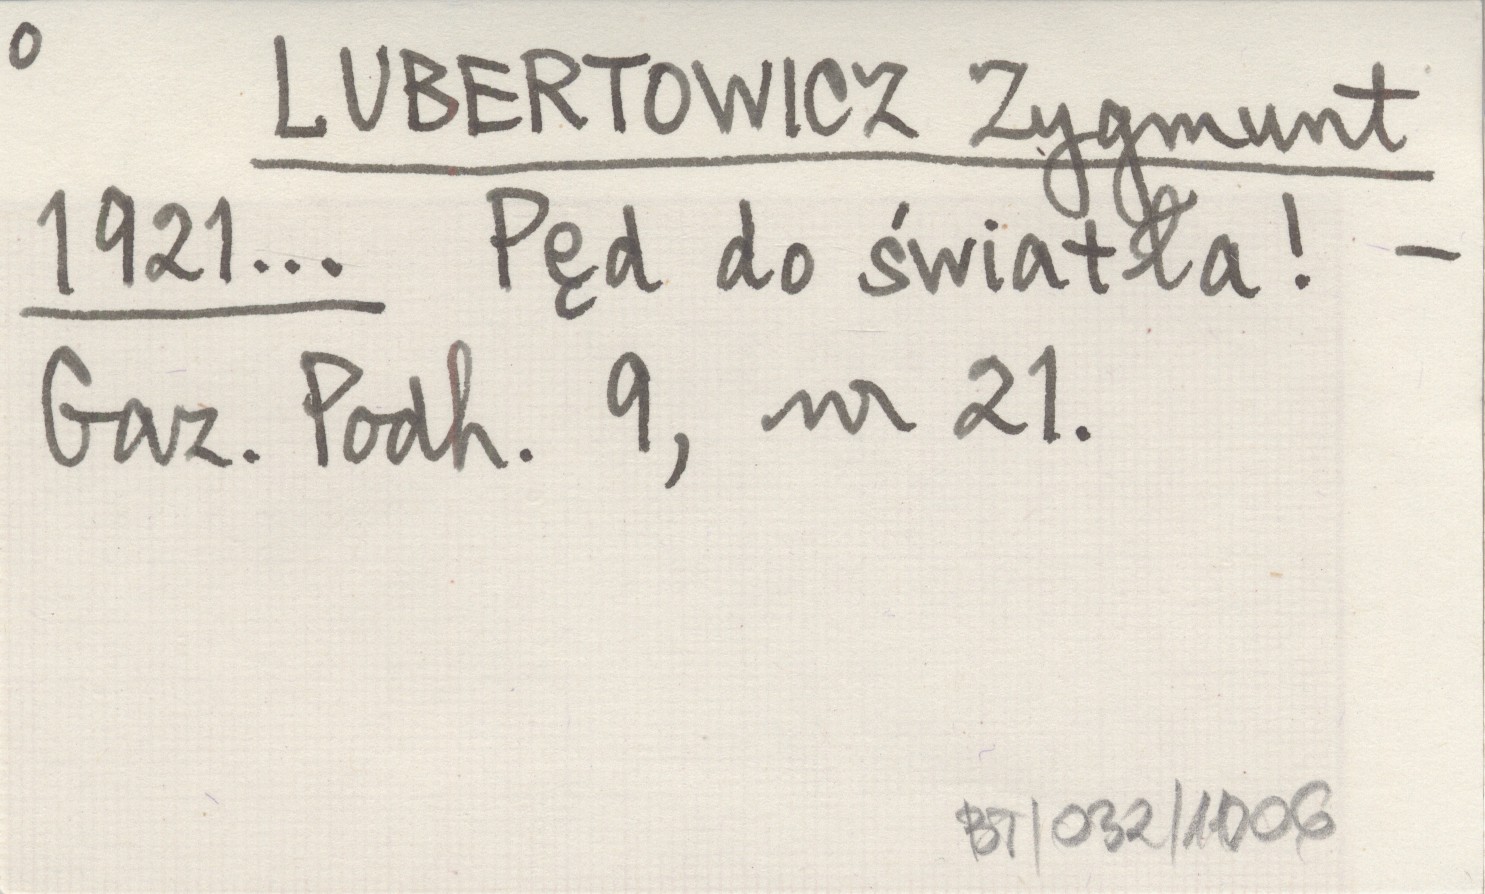 o
LUBERTOWICZ Zygmunt
1921... Pęd do światła! -
Gaz. Podh. 9, nr 21.
BT/032/1006